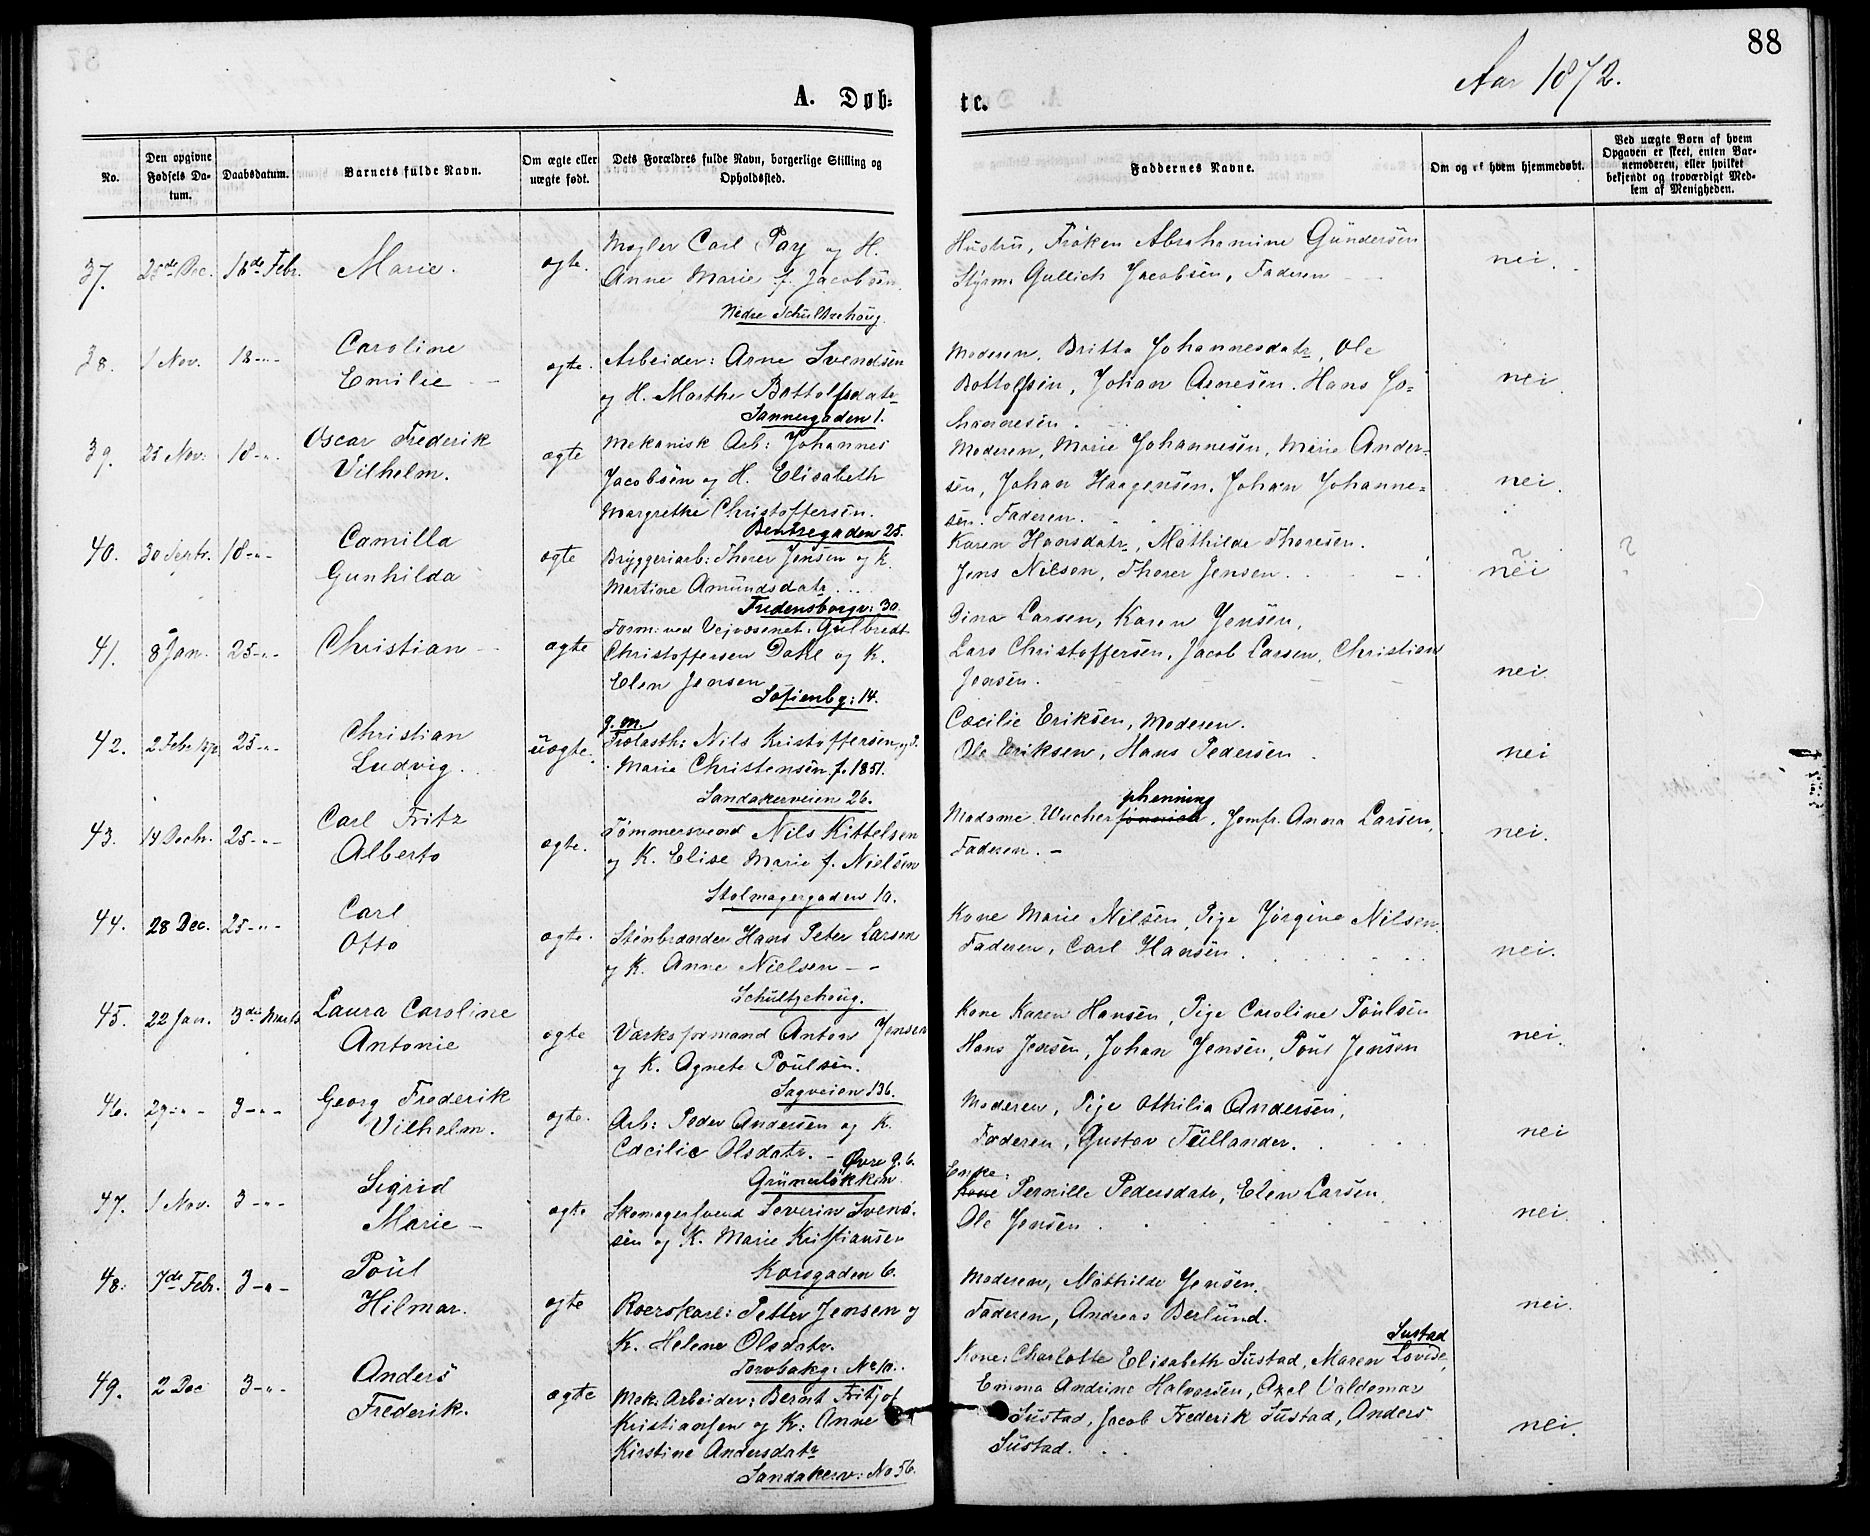 88
Aar 1872.
A. Døb-
te.
No.
Den opgivne Fødsels Da-tum.
Daabsdatum.
Barnets fulde Navn.
Om ægte eller uægte født.
Dets Forældres fulde Navn, borgerlige Stilling og Opholdssted.
Faddernes Navne.
Om og af hvem hjemmedøbt.
Ved uægte Børn af hvem Opgaven er skeet, enten Bar-nemoderen, eller hvilket bekjendt og troværdigt Med-lem af Menigheden.
37. 25de Dec. 18de Febr. Marie. ægte. Mægler Carl Pay og H.
Anne Marie f. Jacobsen.
Nedre Schultzehoug.
Hustru, Frøken Abrahamine Gundersen
Styrm: Gullich Jacobsen, Faderen
nei.
38. 1 Nov. 18-"- Caroline
Emilie ægte. Arbeider: Arne Svendsen
og H. Marthe Bottolfsdatr
Sannergaden 1.
Moderen, Britta Johannesdatr, Ole
Bottolfsen, Johan Arnesen. Hans Jo-
hannesen.
nei
39. 25 Nov. 18-"- Oscar Frederik
Vilhelm. ægte Mekanisk Arb: Johannes
Jacobsen og H. Elisabeth
Margrethe Christoffersen.
Bentsegaden 25.
Moderen, Marie Johannesen, Marie Ander-
sen, Johan Haagensen, Johan Johanne-
sen. Faderen.
nei.
40. 30 Septr. 18-"- Camilla
Gunhilda ægte Bryggeriarb: Thorer Jensen og K.
Martine Amundsdatr
Fredensborgv: 30.
Karen Hansdatr, Mathilde Thoresen.
Jens Nilsen, Thorer Jensen.
nei
?
41. 8 Jan. 25-"- Christian ægte Form: ved Veivæsenet: Gulbrandt
Christoffersen Dahl og K.
Elen Jensen
Sofienbg: 14.
Dina Larsen, Karen Jensen,
Lars Christoffersen, Jacob Larsen, Christian
Jensen.
nei.
42. 2 Febr 1872 25-"- Christian
Ludvig. uægte. g. m.
Nils Kristoffersen og P.
Marie Christensen f. 1851.
Sandakerveien 26.
Cæcilie Eriksen, Moderen.
Ole Eriksen, Hans Pedersen
nei
43. 14 Decbr. 25-"- Carl Fritz
Alberto ægte. Tømmersvend Nils Kittelsen
og K. Elise Marie f. Nielsen
Stolmagergaden 10.
phenning
Madame Wucher, Jomfr. Anna Larsen,
Faderen. -
nei.
44. 28 Dec. 25-"- Carl
Otto ægte. Stenbrænder Hans Peter Larsen
og K. Anne Nielsen - -
Schultzehoug.
Kone Marie Nilsen, Pige Jørgine Nilsen.
Faderen, Carl Hansen.
nei.
45. 22 Jan. 3die Marts Laura Caroline
Antonie ægte Værksformand Anton Jensen
og K. Agnete Poulsen.
Sagveien 136.
Kone Karen Hansen, Pige Caroline Poulsen
Hans Jensen, Johan Jensen, Poul Jensen
nei.
46. 29-"- 3-"- Georg Frederik
Vilhelm. ægte. Arb: Peder Andersen og K.
Cæcilie Olsdatr. - Øvre g. 6.
Grünerløkken
Moderen, Pige Othilia Andersen,
Faderen, Gustav Tullander.
nei
47. 1 Nov. 3-"- Sigrid
Marie - ægte Skomagersvend Severin Svend-
sen og K. Marie Kristiansen
Korsgaden 6.
Enke:
Kone Pernille Pedersdatr, Elen Larsen,
Ole Jensen
nei.
48. 7de Febr. 3-"- Poul
Hilmar. ægte Roerskarl: Petter Jensen og
K. Helene Olsdatr.
Torvbakg: No 10.
Moderen, Mathilde Jensen.
Faderen, Andreas Berlund.
nei.
49. 2 Dec 3-"- Anders
Frederik. ægte Mek: Arbeider: Bernt Fritjof
Kristiansen og K: Anne
Kirstine Andersdatr
Sandakerv: No 56.
Sustad
Kone: Charlotte Elisabeth Sustad, Maren Lovise,
Emma Andrine Halvorsen, Axel Valdemar
Sustad, Jacob Frederik Sustad, Anders
Sustad.
nei.